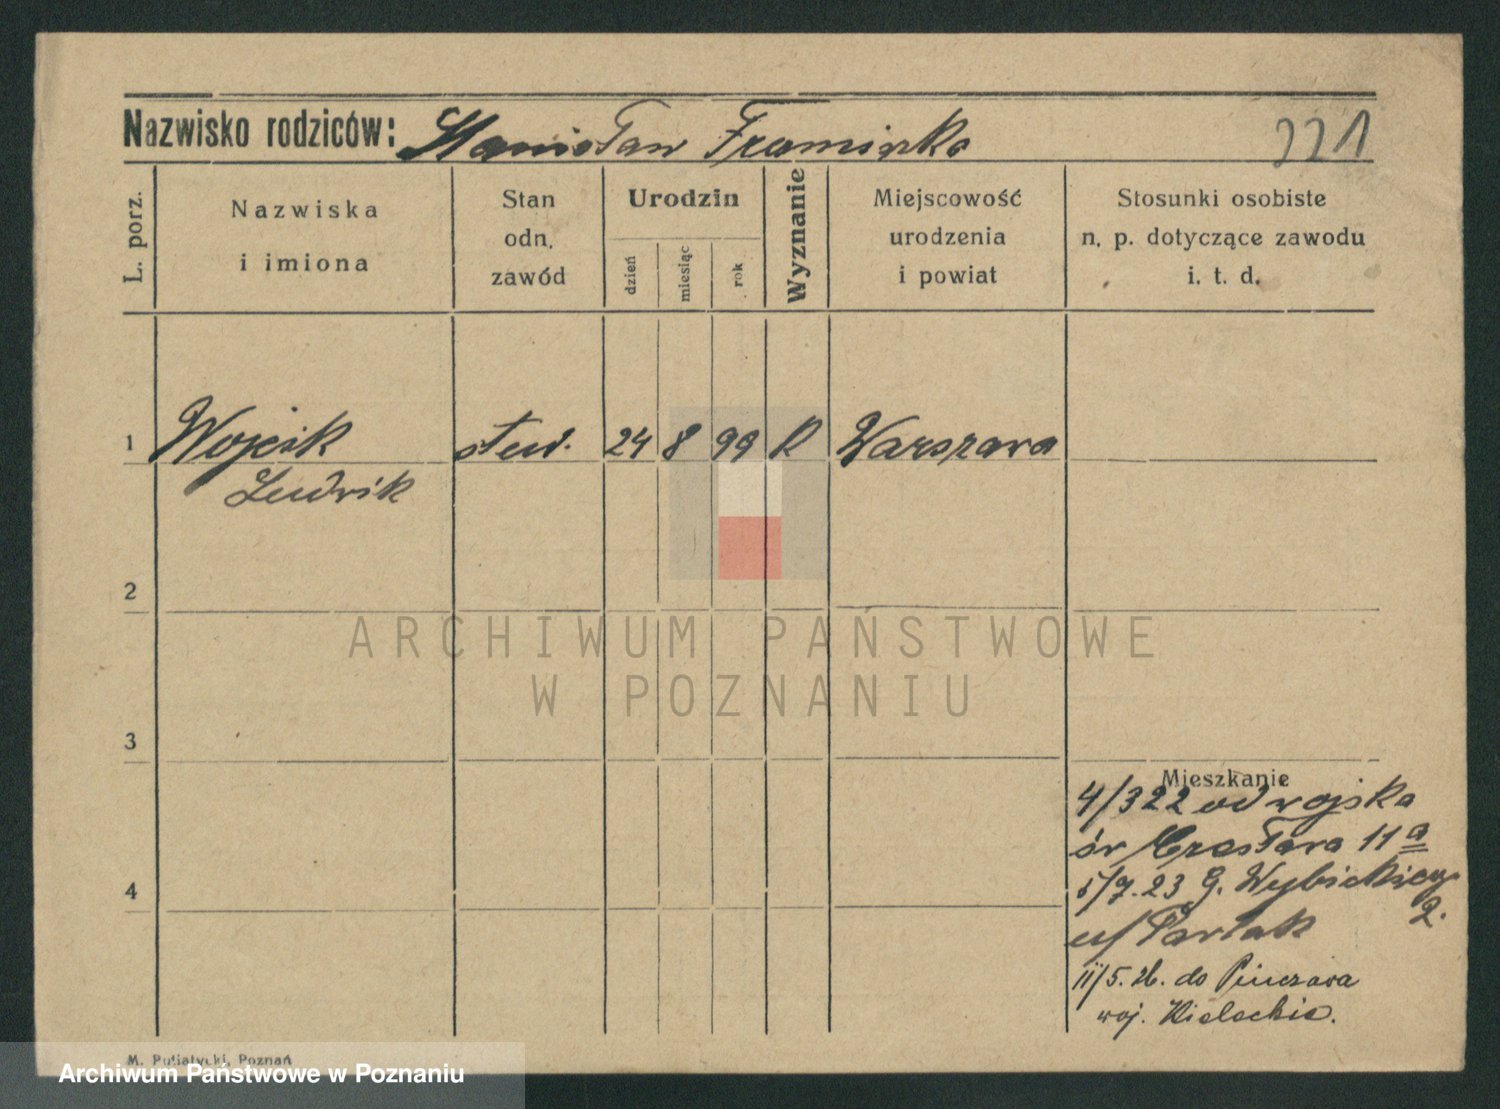 Nazwisko rodziców: Stanisław Franciszka 221
L. porz.
Nazwiska
i imiona
Stan
odn.
zawód
Urodzin
dzień
miesiąc
rok
Wyznanie
Miejscowość
urodzenia
i powiat
Stosunki osobiste
n. p. dotyczące zawodu
i. t. d.
1 Wojcik stud. 24 8 99 R Warszawa
Ludwik
2
ARCHIWUM PAŃSTWOWE
W POZNANIU
3
Mieszkanie
4/3 22 od wojska
św Czesława 11a
5/7. 23 G. Wybickiego
2.
u/
4
11/5. 26. do Pinczowa
woj. Kieleckie.
M. Putiatycki, Poznań
Archiwum Państwowe w Poznaniu